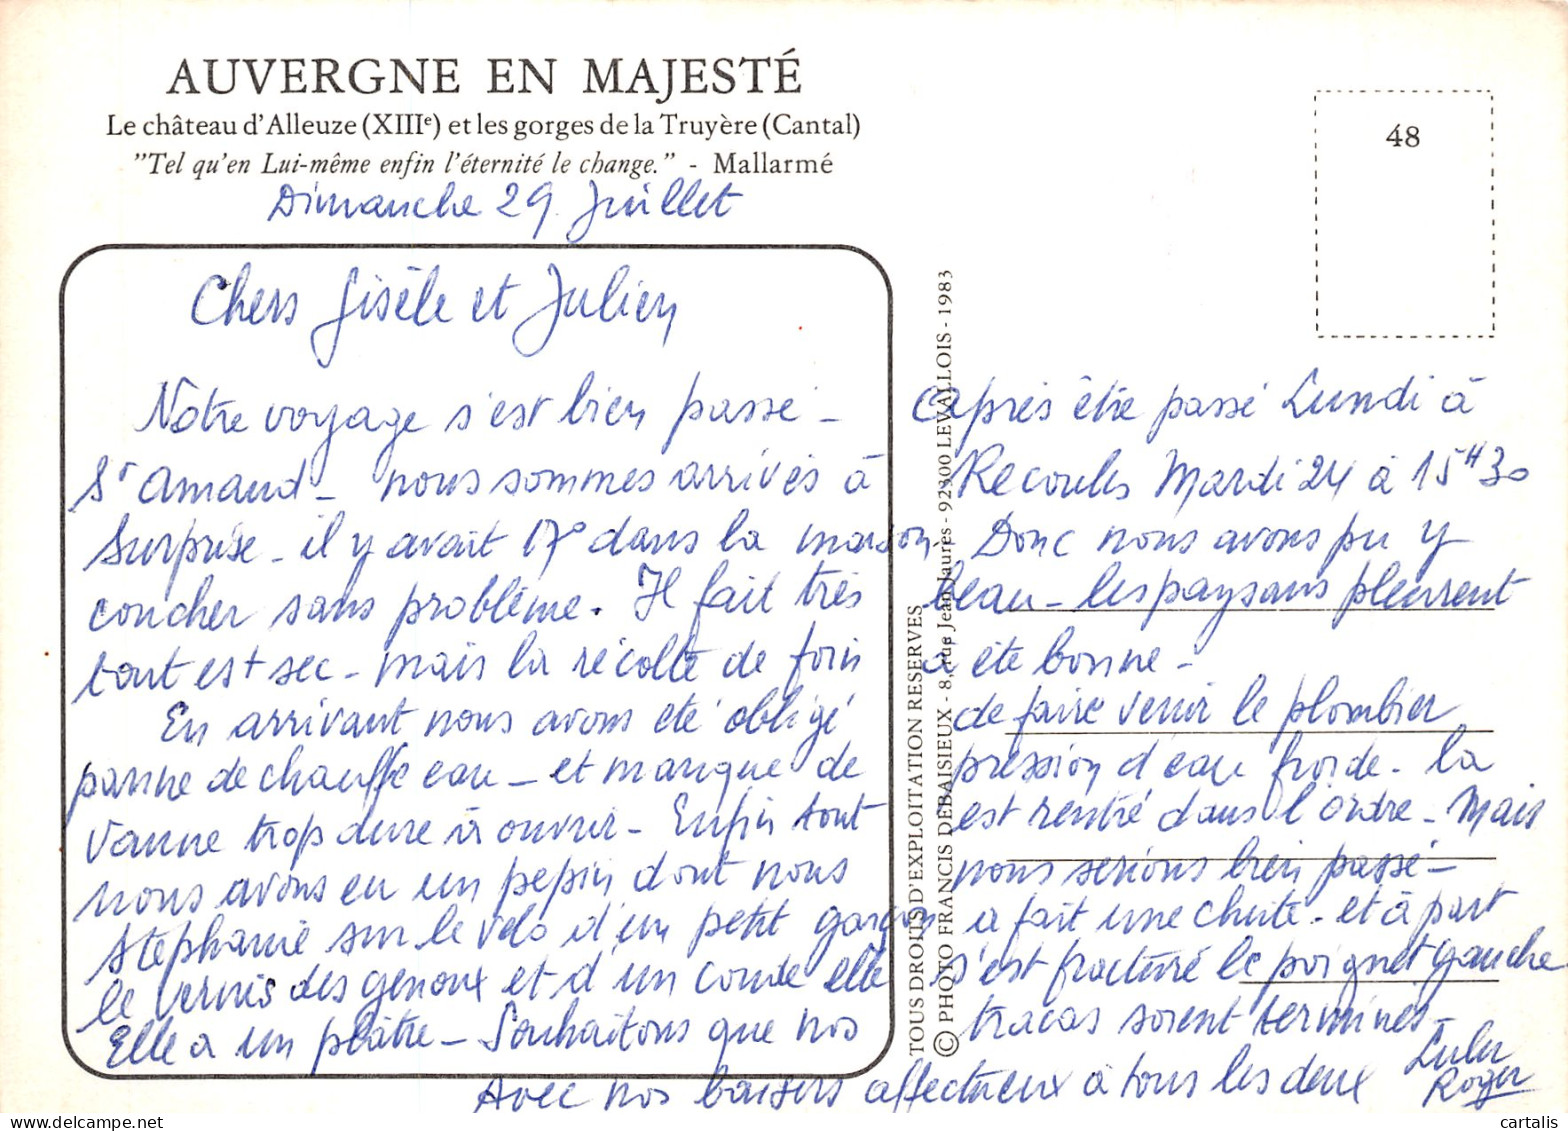 AUVERGNE EN MAJESTÉ
Le château d'Alleuze (XIIIe) et les gorges de la Truyère (Cantal)
"Tel qu'en Lui-même enfin l'éternité le change." - Mallarmé
48
Dimanche 29 Juillet
Chers Gisèle et Julien
Notre voyage s'est bien passé - après être passé Lundi à
St Amand - nous sommes arrivés à Recoules Mardi 24 à 15H30
Surprise - il y avait 17° dans la maison. Donc nous avons pu y
coucher sans problème. Il fait très beau - les paysans pleurent
tout est sec - mais la récolte de foin a été bonne -
En arrivant nous avons été obligé de faire venir le plombier
panne de chauffe eau - et manque de pression d'eau froide - la
vanne trop dure à ouvrir - Enfin tout est rentré dans l'ordre - Mais
nous avons eu un pépin dont nous nous serions bien passé -
Stéphanie sur le vélo d'un petit garçon a fait une chute - et à part
le vernis des genoux et d'un coude elle s'est fracturé le poignet gauche
Elle a un plâtre - Souhaitons que nos tracas soient terminés -
Avec nos baisers affectueux à tous les deux
Lulu
Roger
TOUS DROITS D'EXPLOITATION RESERVES
© PHOTO FRANCIS DEBAISIEUX - 8, rue Jean Jaurès - 92300 LEVALLOIS - 1983
cartalis